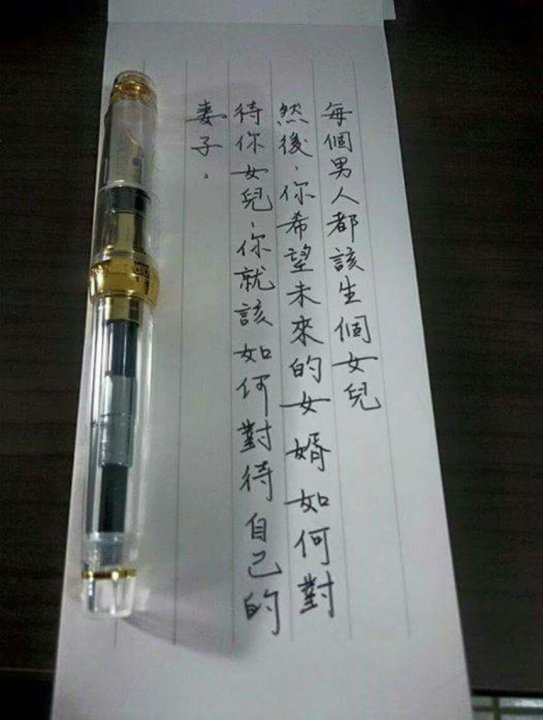 每個男人都該生個女兒
然後，你希望未來的女婿如何對
待你女兒，你就該如何對待自己的
妻子。